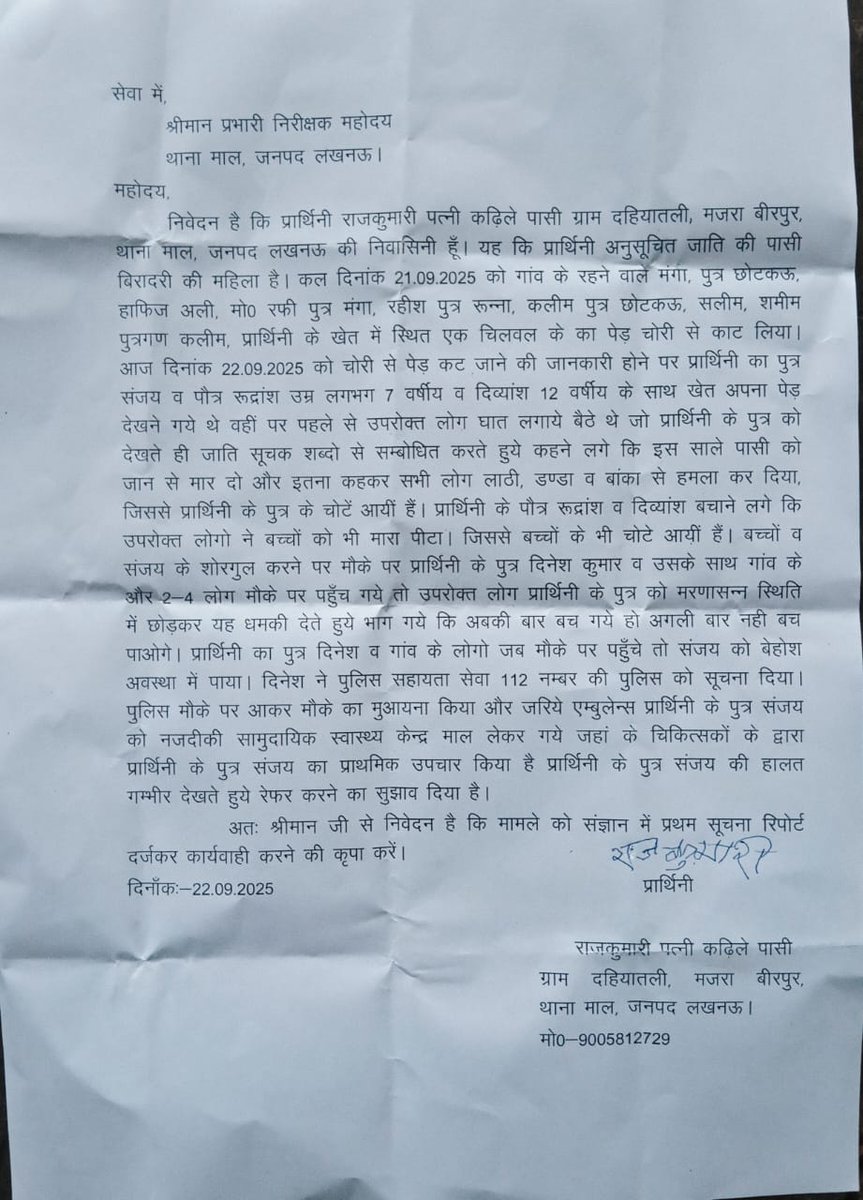 सेवा में,
श्रीमान प्रभारी निरीक्षक महोदय
थाना माल, जनपद लखनऊ।
महोदय,
निवेदन है कि प्रार्थिनी राजकुमारी पत्नी कढ़िले पासी ग्राम दहियातली, मजरा बीरपुर,
थाना माल, जनपद लखनऊ की निवासिनी हूँ। यह कि प्रार्थिनी अनुसूचित जाति की पासी
बिरादरी की महिला है। कल दिनांक 21.09.2025 को गांव के रहने वाले मंगा, पुत्र छोटकऊ,
हाफिज अली, मो0 रफी पुत्र मंगा, रहीश पुत्र रून्ना, कलीम पुत्र छोटकऊ, सलीम, शमीम
पुत्रगण कलीम, प्रार्थिनी के खेत में स्थित एक चिलवल के का पेड़ चोरी से काट लिया।
आज दिनांक 22.09.2025 को चोरी से पेड़ कट जाने की जानकारी होने पर प्रार्थिनी का पुत्र
संजय व पौत्र रूद्रांश उम्र लगभग 7 वर्षीय व दिव्यांश 12 वर्षीय के साथ खेत अपना पेड़
देखने गये थे वहीं पर पहले से उपरोक्त लोग घात लगाये बैठे थे जो प्रार्थिनी के पुत्र को
देखते ही जाति सूचक शब्दो से सम्बोधित करते हुये कहने लगे कि इस साले पासी को
जान से मार दो और इतना कहकर सभी लोग लाठी, डण्डा व बांका से हमला कर दिया,
जिससे प्रार्थिनी के पुत्र के चोटें आयीं हैं। प्रार्थिनी के पौत्र रूद्रांश व दिव्यांश बचाने लगे कि
उपरोक्त लोगो ने बच्चों को भी मारा पीटा। जिससे बच्चों के भी चोटे आयीं हैं। बच्चों व
संजय के शोरगुल करने पर मौके पर प्रार्थिनी के पुत्र दिनेश कुमार व उसके साथ गांव के
और 2–4 लोग मौके पर पहुँच गये तो उपरोक्त लोग प्रार्थिनी के पुत्र को मरणासन्न स्थिति
में छोड़कर यह धमकी देते हुये भाग गये कि अबकी बार बच गये हो अगली बार नही बच
पाओगे। प्रार्थिनी का पुत्र दिनेश व गांव के लोगो जब मौके पर पहुँचे तो संजय को बेहोश
अवस्था में पाया। दिनेश ने पुलिस सहायता सेवा 112 नम्बर की पुलिस को सूचना दिया।
पुलिस मौके पर आकर मौके का मुआयना किया और जरिये एम्बुलेन्स प्रार्थिनी के पुत्र संजय
को नजदीकी सामुदायिक स्वास्थ्य केन्द्र माल लेकर गये जहां के चिकित्सकों के द्वारा
प्रार्थिनी के पुत्र संजय का प्राथमिक उपचार किया है प्रार्थिनी के पुत्र संजय की हालत
गम्भीर देखते हुये रेफर करने का सुझाव दिया है।
अतः श्रीमान जी से निवेदन है कि मामले को संज्ञान में प्रथम सूचना रिपोर्ट
दर्जकर कार्यवाही करने की कृपा करें।
राजकुमारी
दिनाँकः–22.09.2025
प्रार्थिनी
राजकुमारी पत्नी कढ़िले पासी
ग्राम दहियातली, मजरा बीरपुर,
थाना माल, जनपद लखनऊ।
मो0–9005812729